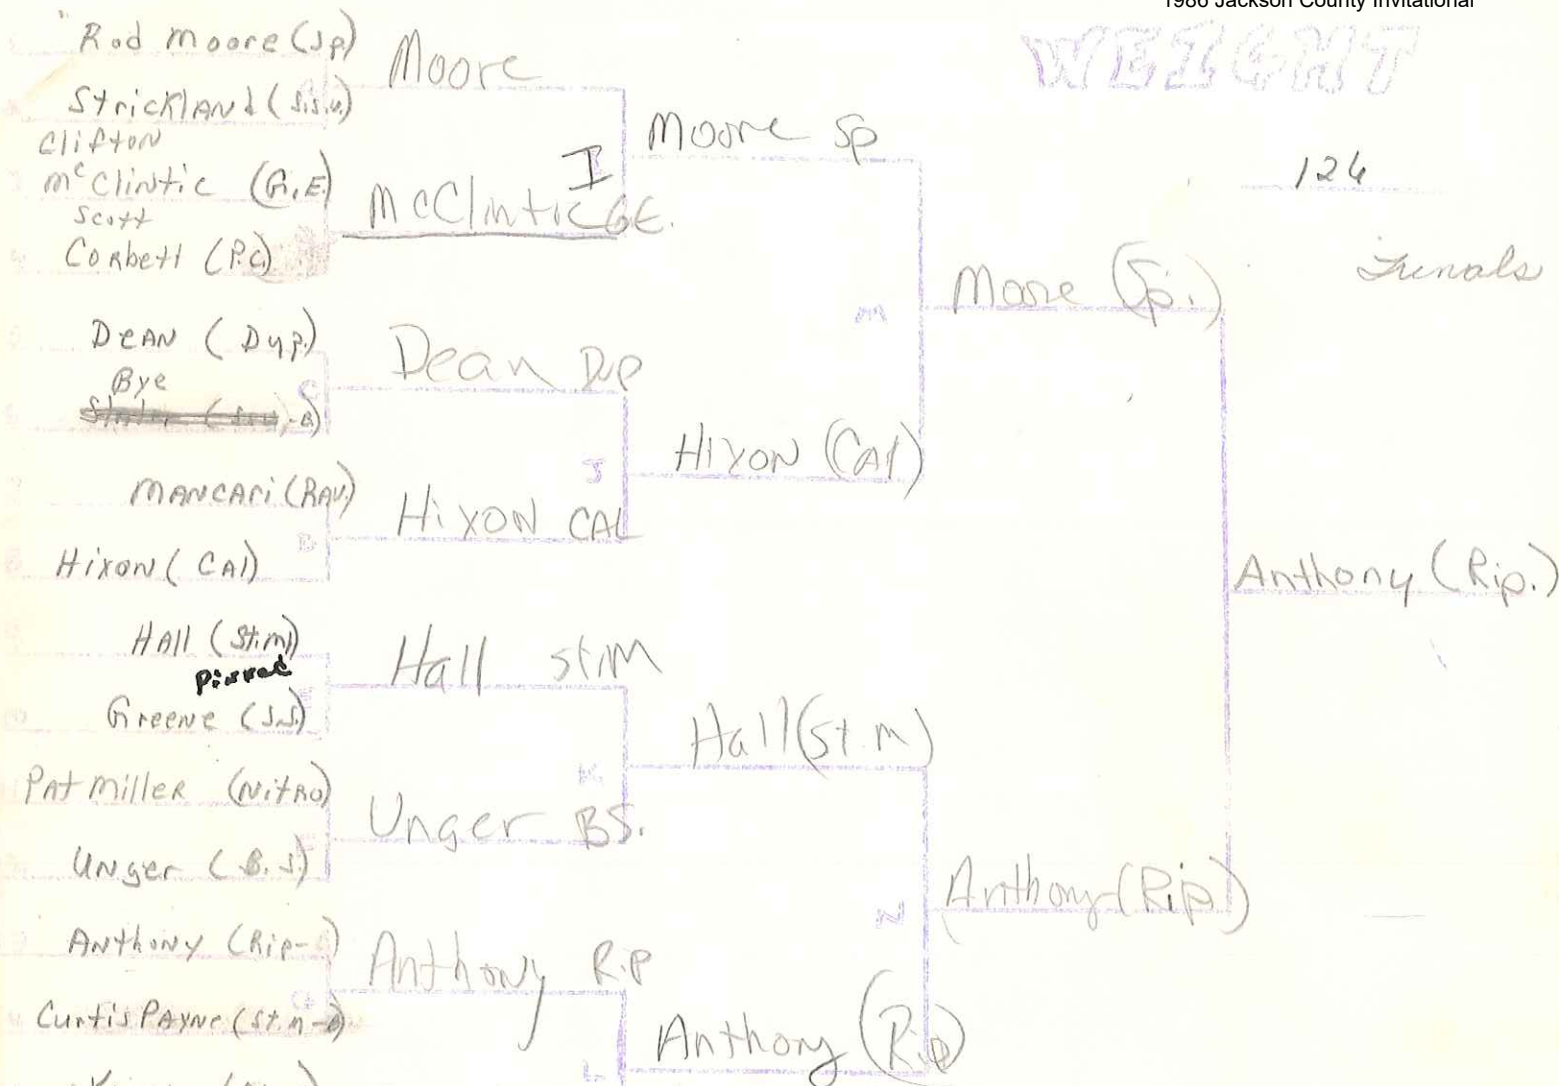 1986 Jackson County Invitational
WEIGHT
126
Finals
Rod Moore (Sp)
Strickland (S.S.V.)
Clifton
McClintic (G.E)
Scott
Corbett (P.C)
DEAN (Dup.)
Bye
MANCARI (RAV.)
Hixon (CAl)
HAll (St.m)
Pinned
Greene (S.S)
PAt Miller (NitRO)
UNger (B.S)
ANthONY (Rip-
Curtis PAYNe (St.m-B)
Moore
McClintic GE.
Dean Dup
HiXON CAL
Hall StM
Unger BS.
Anthony Rip
Moore Sp
HiXON (CAl)
Hall (St.m)
Anthony (Rip)
Moore (Sp.)
Anthony (Rip.)
Anthony (Rip.)
C
D
G
I
J
K
L
M
N